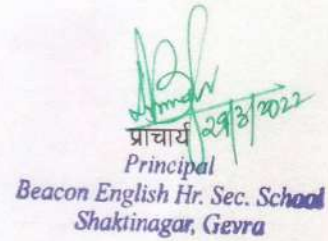 29/3/2022
प्राचार्य
Principal
Beacon English Hr. Sec. School
Shaktinagar, Gevra